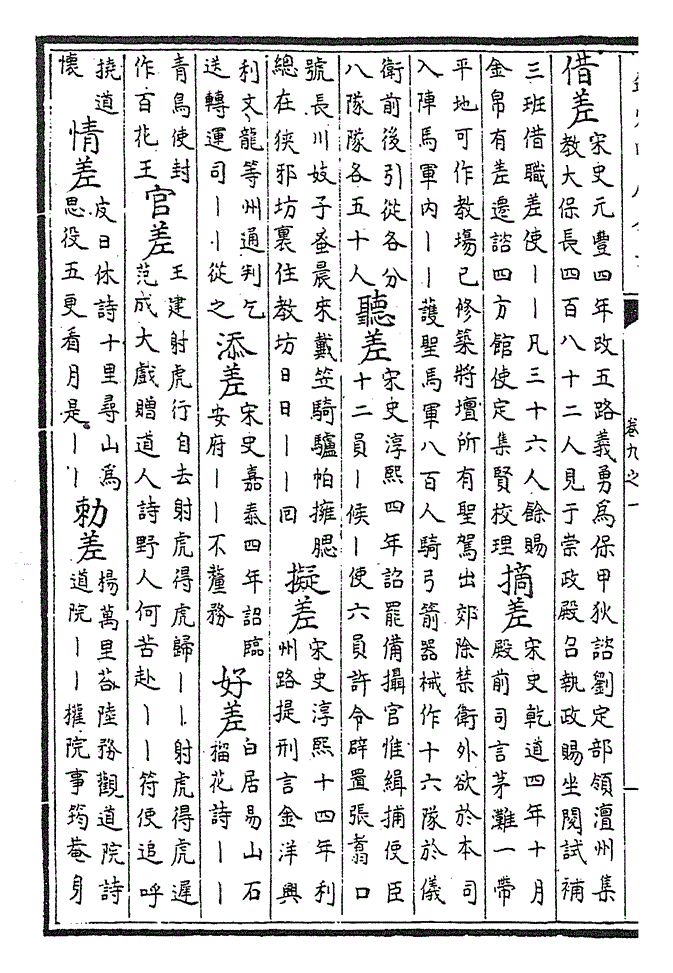 借差
宋史元豐四年改五路義勇為保甲狄諮劉定部領澶州集
教大保長四百八十二人見于崇政殿召執政賜坐閱試補
三班借職差使丨丨凡三十六人餘賜
金帛有差遷諮四方館使定集賢校理
摘差
宋史乾道四年十月
殿前司言茅灘一帶
平地可作教塲已修築將壇所有聖駕出郊除禁衛外欲於本司
入陣馬軍内丨丨䕶聖馬軍八百人騎弓箭器械作十六隊於儀
衛前後引從各分
八隊隊各五十人
聽差
宋史淳熙四年詔罷備攝官惟緝捕使臣
十二員丨候丨使六員許令辟置張翥口
號長川妓子蚤晨來戴笠騎驢帕擁腮
總在狹邪坊裏住教坊日日丨丨回
擬差
宋史淳熙十四年利
州路提刑言金洋興
利文龍等州通判乞
送轉運司丨丨從之
添差
宋史嘉泰四年詔臨
安府丨丨不釐務
好差
白居易山石
榴花詩丨丨
青鳥使封
作百花王
官差
王建射虎行自去射虎得虎歸丨丨射虎得虎遲
范成大戲贈道人詩野人何苦赴丨丨符使追呼
撓道
懷
情差
皮日休詩十里尋山為
思役五更看月是丨丨
勅差
楊萬里荅陸務觀道院詩
道院丨丨擢院事筠菴身
卷九之一